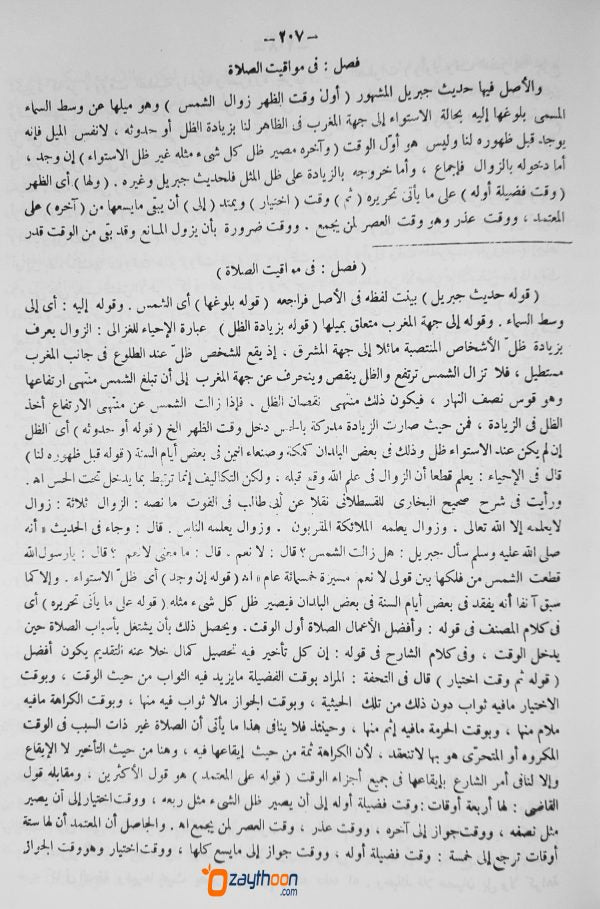 — ٢٠٧ —
فصل : فى مواقيت الصلاة
والأصل فيها حديث جبريل المشهور ( أول وقت الظهر زوال الشمس ) وهو ميلها عن وسط السماء
المسمى بلوغها إليه بحالة الاستواء إلى جهة المغرب فى الظاهر لنا بزيادة الظل أو حدوثه ، لانفس الميل فإنه
يوجد قبل ظهوره لنا وليس هو أوّل الوقت ( وآخره مصير ظل كل شىء مثله غير ظل الاستواء ) إن وجد ،
أما دخوله بالزوال فإجماع ، وأما خروجه بالزيادة على ظل المثل فلحديث جبريل وغيره . ( ولها ) أى الظهر
( وقت فضيلة أوله ) على ما يأتى تحريره ( ثم ) وقت ( اختيار ) ويمتد ( إلى ) أن يبقى مايسعها من ( آخره ) على
المعتمد ، ووقت عذر وهو وقت العصر لمن يجمع . ووقت ضرورة بأن يزول المانع وقد بقى من الوقت قدر
( فصل : فى مواقيت الصلاة )
( قوله حديث جبريل ) بينت لفظه فى الأصل فراجعه ( قوله بلوغها ) أى الشمس . وقوله إليه : أى إلى
وسط السماء . وقوله إلى جهة المغرب متعلق بميلها ( قوله بزيادة الظل ) عبارة الإحياء للغزالى : الزوال يعرف
بزيادة ظلّ الأشخاص المنتصبة مائلا إلى جهة المشرق ، إذ يقع للشخص ظلّ عند الطلوع فى جانب المغرب
مستطيل ، فلا تزال الشمس ترتفع والظل ينقص وينحرف عن جهة المغرب إلى أن تبلغ الشمس منتهى ارتفاعها
وهو قوس نصف النهار ، فيكون ذلك منتهى نقصان الظل . فإذا زالت الشمس عن منتهى الارتفاع أخذ
الظل فى الزيادة ، فمن حيث صارت الزيادة مدركة بالحس دخل وقت الظهر الخ ( قوله أو حدوثه ) أى الظل
إن لم يكن عند الاستواء ظل وذلك فى بعض البلدان كمكة وصنعاء اليمن فى بعض أيام السنة ( قوله قبل ظهوره لنا )
قال فى الإحياء : يعلم قطعا أن الزوال فى علم الله وقع قبله ، ولكن التكاليف إنما ترتبط بما يدخل تحت الحس اه .
ورأيت فى شرح صحيح البخارى للقسطلانى نقلا عن أبى طالب فى القوت ما نصه : الزوال ثلاثة : زوال
لايعلمه إلا الله تعالى ، وزوال يعلمه الملائكة المقربون . وزوال يعلمه الناس . قال : وجاء فى الحديث « أنه
صلى الله عليه وسلم سأل جبريل : هل زالت الشمس؟ قال : لا نعم . قال : ما معنى لا نعم ؟ قال : يارسول الله
قطعت الشمس من فلكها بين قولى لا نعم مسيرة خمسمائة عام » اه ( قوله إن وجد ) أى ظلّ الاستواء . وإلا كما
سبق آنفا أنه يفقد فى بعض أيام السنة فى بعض البلدان فيصير ظل كل شىء مثله ( قوله على ما يأتى تحريره ) أى
فى كلام المصنف فى قوله : وأفضل الأعمال الصلاة أول الوقت . ويحصل ذلك بأن يشتغل بأسباب الصلاة حين
يدخل الوقت ، وفى كلام الشارح فى قوله : إن كل تأخير فيه تحصيل كمال خلا عنه التقديم يكون أفضل
( قوله ثم وقت اختيار ) قال فى التحفة : المراد بوقت الفضيلة مايزيد فيه الثواب من حيث الوقت ، وبوقت
الاختيار مافيه ثواب دون ذلك من تلك الحيثية ، وبوقت الجواز مالا ثواب فيه منها ، وبوقت الكراهة مافيه
ملام منها ، وبوقت الحرمة مافيه إثم منها ، وحينئذ فلا ينافى هذا ما يأتى أن الصلاة غير ذات السبب فى الوقت
المكروه أو المتحرّى هو بها لاتنعقد ، لأن الكراهة ثمة من حيث إيقاعها فيه ، وهنا من حيث التأخير لا الإيقاع
وإلا لنافى أمر الشارع بإيقاعها فى جميع أجزاء الوقت ( قوله على المعتمد ) هو قول الأكثرين ، ومقابله قول
القاضى : لها أربعة أوقات : وقت فضيلة أوله إلى أن يصير ظل الشىء مثل ربعه ، ووقت اختيار إلى أن يصير
مثل نصفه ، ووقت جواز إلى آخره ، ووقت عذر ، وقت العصر لمن يجمع اه . والحاصل أن المعتمد أن لها ستة
أوقات ترجع إلى خمسة : وقت فضيلة أوله ، ووقت جواز إلى مايسع كلها ، ووقت اختيار وهو وقت الجواز
Ozaythoon
.com